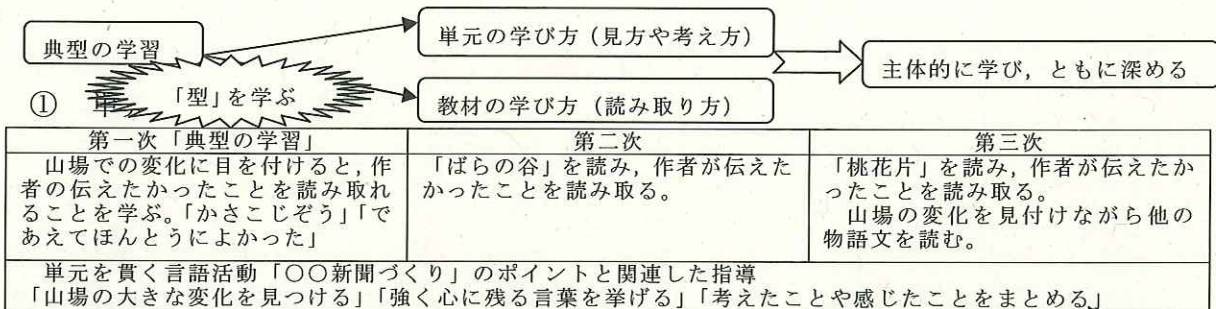 典型の学習
「型」を学ぶ
単元の学び方（見方や考え方）
教材の学び方（読み取り方）
主体的に学び，ともに深める
①
第一次「典型の学習」
山場での変化に目を付けると，作
者の伝えたかったことを読み取れ
ることを学ぶ。「かさこじぞう」「で
あえてほんとうによかった」
第二次
「ばらの谷」を読み，作者が伝えた
かったことを読み取る。
第三次
「桃花片」を読み，作者が伝えたか
ったことを読み取る。
山場の変化を見付けながら他の
物語文を読む。
単元を貫く言語活動「〇〇新聞づくり」のポイントと関連した指導
「山場の大きな変化を見つける」「強く心に残る言葉を挙げる」「考えたことや感じたことをまとめる」